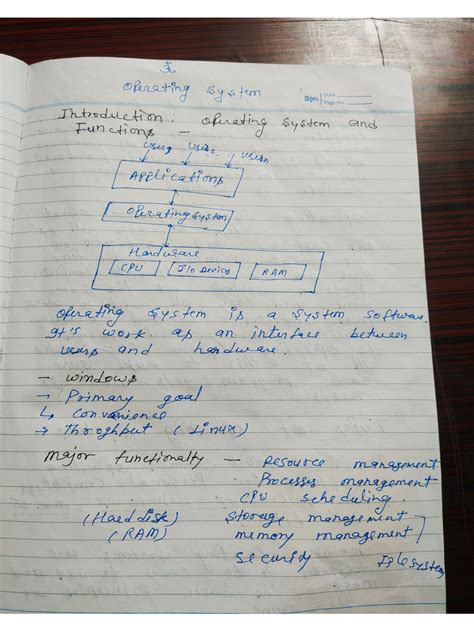 ॐ
Operating System
Date
Page No.
Introduction: Operating System and
Functions -
user1 user2 usern
Applications
Operating System
Hardware
CPU I/o Devices RAM
Operating System is a System Software.
It's work as an interface between
users and hardware.
- windows
→ Primary goal
↳ Convenience
→ Throghput (Linux)
Major functionalty - Resource management
Processes management
CPU scheduling.
(Hard disk) Storage management
(RAM) memory management
Security Filesystem